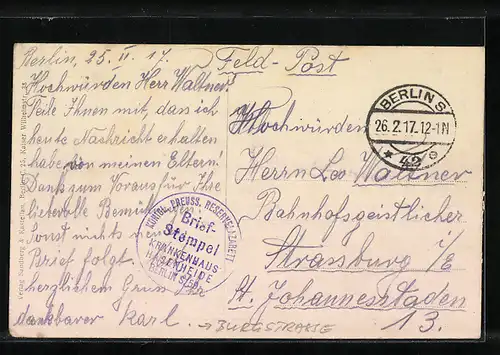 Berlin, 25. II. 17.
Feld-Post
Hochwürden Herr Waltner!
Teile Ihnen mit, dass ich
heute Nachricht erhalten
habe von meinen Eltern.
Dank zum Voraus für Ihre
liebevolle Bemüh
Sonst nichts neu
Brief folgt.
herzlichem Gruss Ihr
dankbarer Karl.
Hochwürden
Herrn Leo Waltner
Bahnhofsgeistlicher
Strassburg i/E
St. Johannesstaden
13.
→ BURGSTRASSE
BERLIN S
26.2.17.12-1N
* 42 e
KÖNIGL. PREUSS. RESERVE-LAZARETT
Brief-
Stempel
KRANKENHAUS
HASENHEIDE
BERLIN S/59
Berlin C. 25, Kaiser Wilhelmstr.